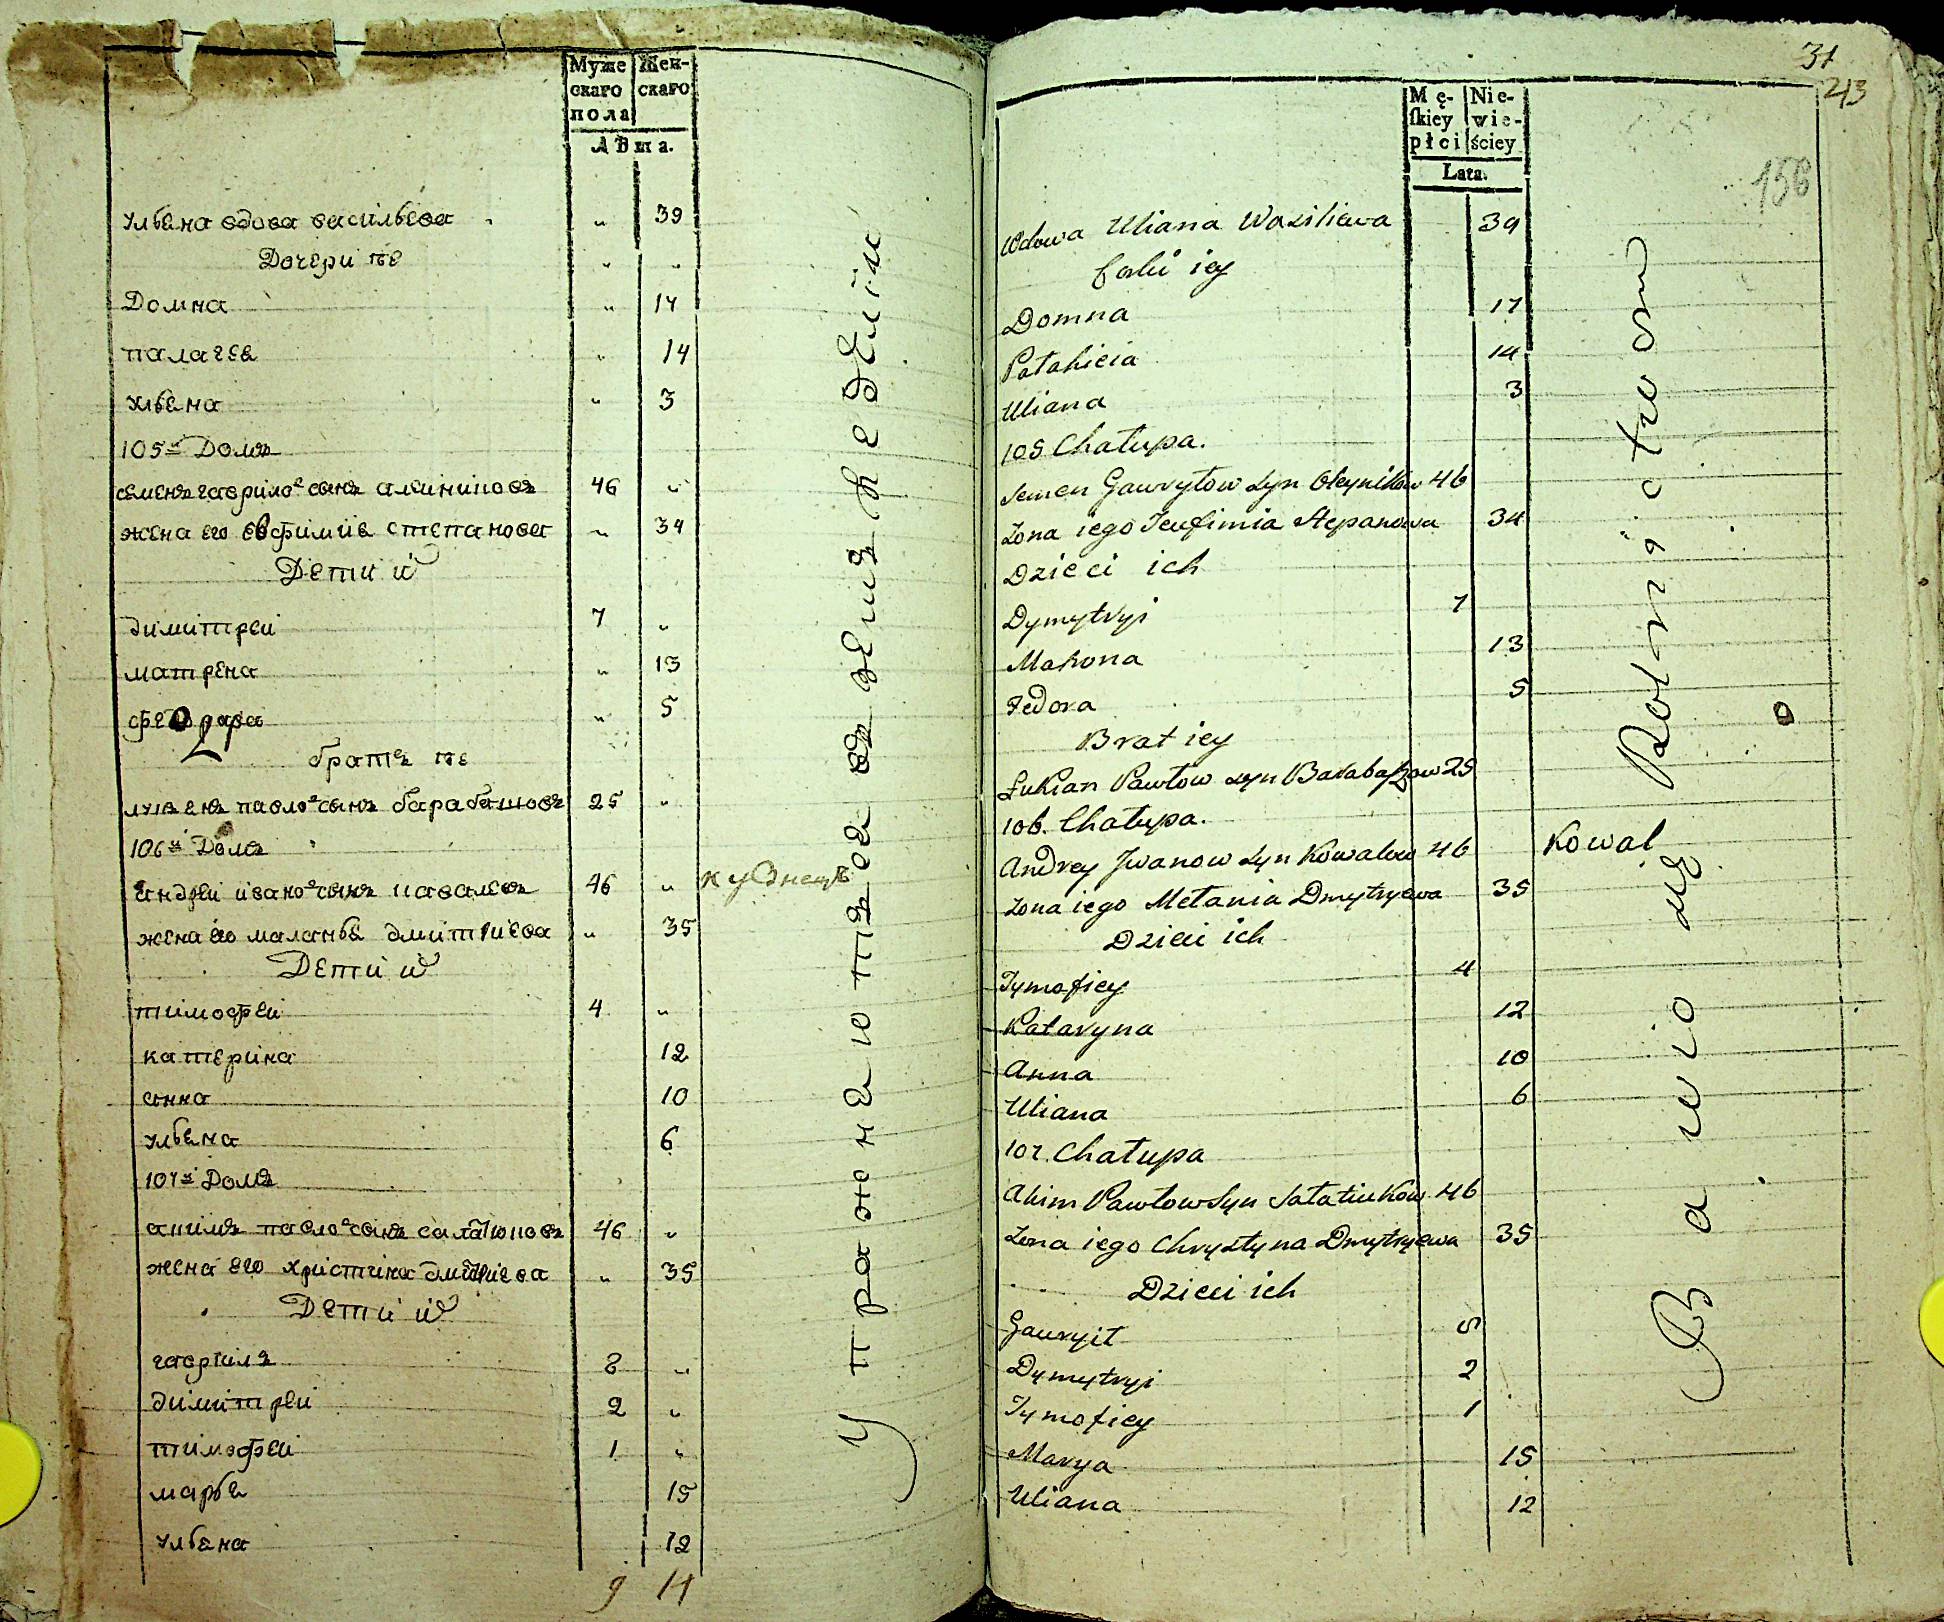 Муже Жен-
скаго скаго
пола
Лѣта.
ульяна вдова васильева " 39
Дочери ѣе " "
Домна " 17
палагея " 14
ульяна " 3
105й Домъ
семенъ гаврило сынъ алейниковъ 46 "
жена его евфимия степанова " 34
Дети их
димитрей 7 "
матрена " 13
феодора " 5
братъ ѣе
лукьянъ павло сынъ барабашовъ 25 "
106й Домъ
андрей ивано сынъ ковалевъ 46 " кузнецъ
жена его маланья дмитриева " 35
Дети их
тимофей 4 "
катерина 12
анна 10
ульяна 6
107й Домъ
акимъ павло сынъ салатюковъ 46 "
жена его христина дмитриева " 35
Дети их
гаврила 8 "
димитрей 2 "
тимофей 1 "
марья 15
ульяна 12
9 14
Упражнаютца въ земле неделии
31
43
156
Mę- Nie-
skiey wie-
płci ściey
Lata.
Wdowa Uliana Wasiliewa 39
Corki iey
Domna 17
Pałahieia 14
Uliana 3
105 Chałupa.
Semen Gawryłow Syn Oleynikow 46
Zona iego Jeufimia Stepanowa 34
Dzieci ich
Dymytryi 7
Matrona 13
Fedora 5
Brat iey
Łukian Pawłow Syn Barabaszow 25
106. Chałupa.
Andrey Jwanow Syn Kowalow 46 Kowal
Zona iego Mełania Dmytryewa 35
Dzieci ich
Tymofiey 4
Kataryna 12
Anna 10
Uliana 6
107. Chałupa
Akim Pawłow Syn Sałatiukow 46
Zona iego Chrystyna Dmytryewa 35
Dzieci ich
Gauryił 8
Dymytryi 2
Tymofiey 1
Marya 15
Uliana 12
Bawio się Rolnictwom